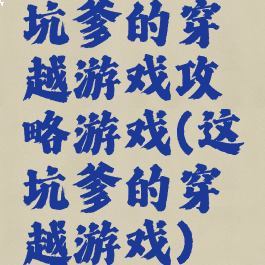 坑爹的穿
越游戏攻
略游戏(这
坑爹的穿
越游戏)